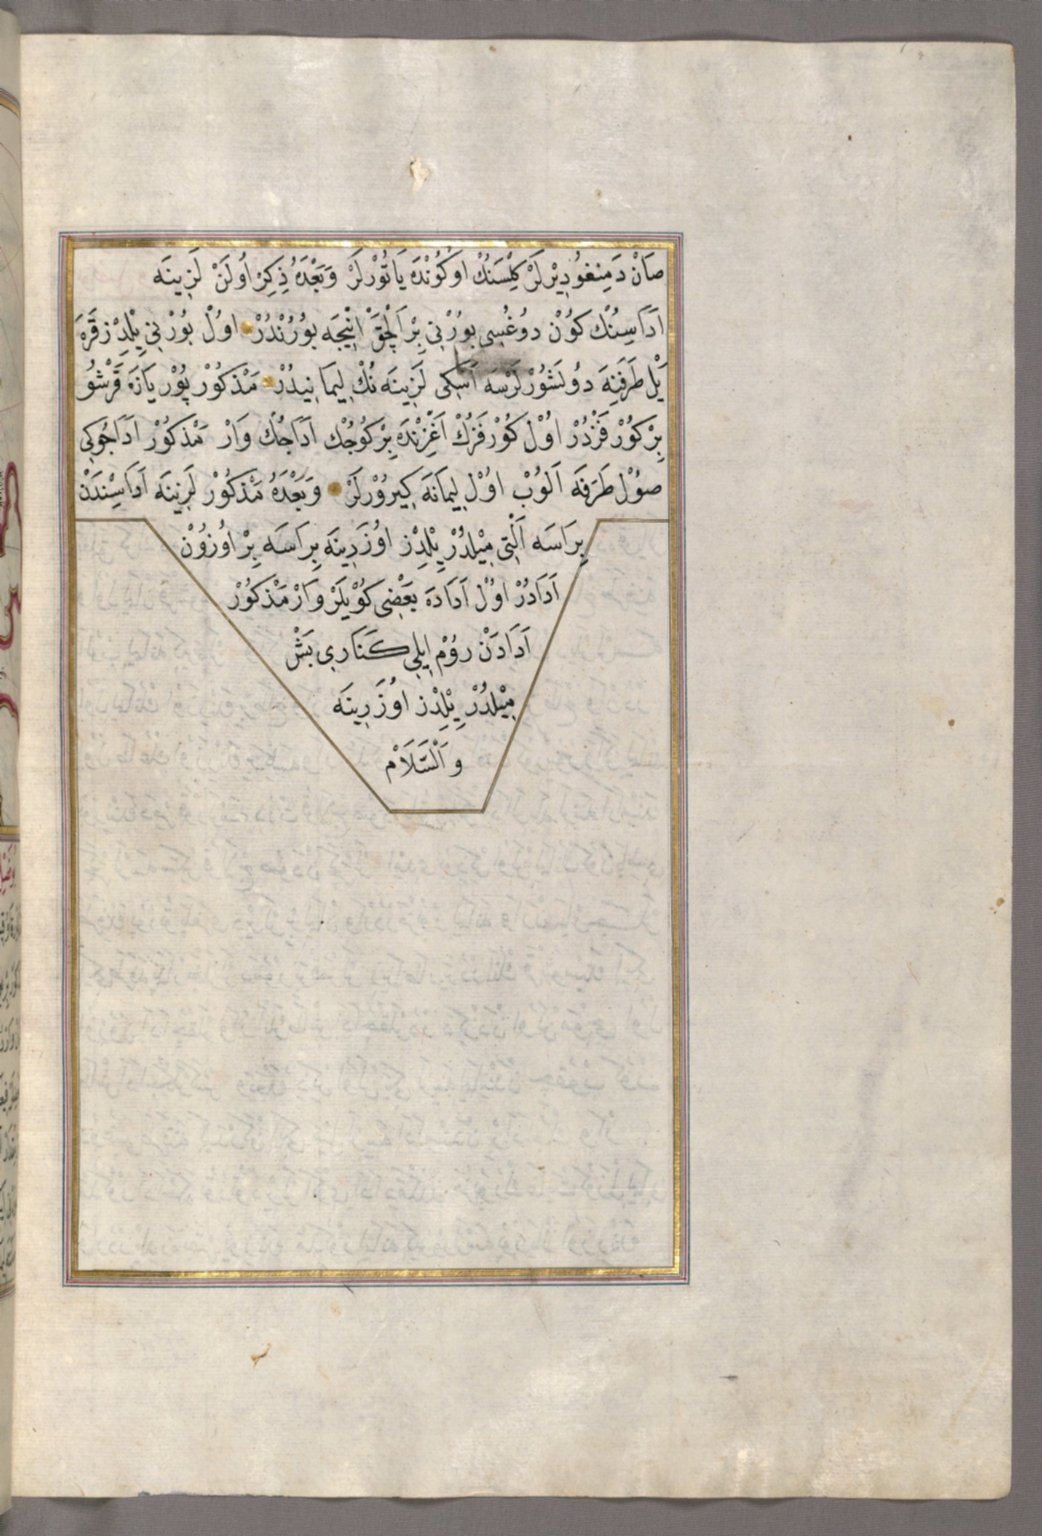 صَانْ دَمِنغُو دِيْرلَرْ كِلْسَنُكْ اوكُونْدَه يَاتُوْرلَرْ وَبَعْدَهُ ذِكِرْ اوُلَنْ لَزِينَه
اَدَاسِنُكْ كوُنْ دوُغُسِى بوُرْنِي بِرْ اَلْچَقْ اِنْيجَه بوُرُنْدُرْ اوُلْ بوُرْنِي يِلْدِزْ قَرَه
يَلْ طَرَفِنَه دوُلَشُورْلَرْسَه اَسْكِى لَزِينَه نُكْ لِيمَا نِيدُرْ مَذْكوُرْ يَازَه قَرْشُو
بِرْ كوُرْفَزْدُرْ اوُلْ كوُرفَزُكْ اَغْزِنْدَه بِرْ كوُجُكْ اَدَاجُكْ وَارْ مَذْكوُرْ اَدَاجُوكِى
صوُلْ طَرَفَه اَلوُبْ اوُلْ لِيمَانَه كِيروُرْلَرْ وَبَعْدَهُ مَذْكوُرْ لَزِينَه اَدَاسِنْدَنْ
بِرَاسَه اَلْتِى مِيْلدُرْ يِلْدِزْ اوُزَرِينَه بِرَاسَه بِرْ اوُزوُنْ
اَدَادُرْ اوُلْ اَدَادَه بَعْضِى كوُيْلَرْ وَارْ مَذْكوُرْ
اَدَادَنْ روُمْ اِيلِي كَنَارِى بَشْ
مِيْلدُرْ يِلْدِزْ اوُزَرِينَه
وَالسَّلَامْ